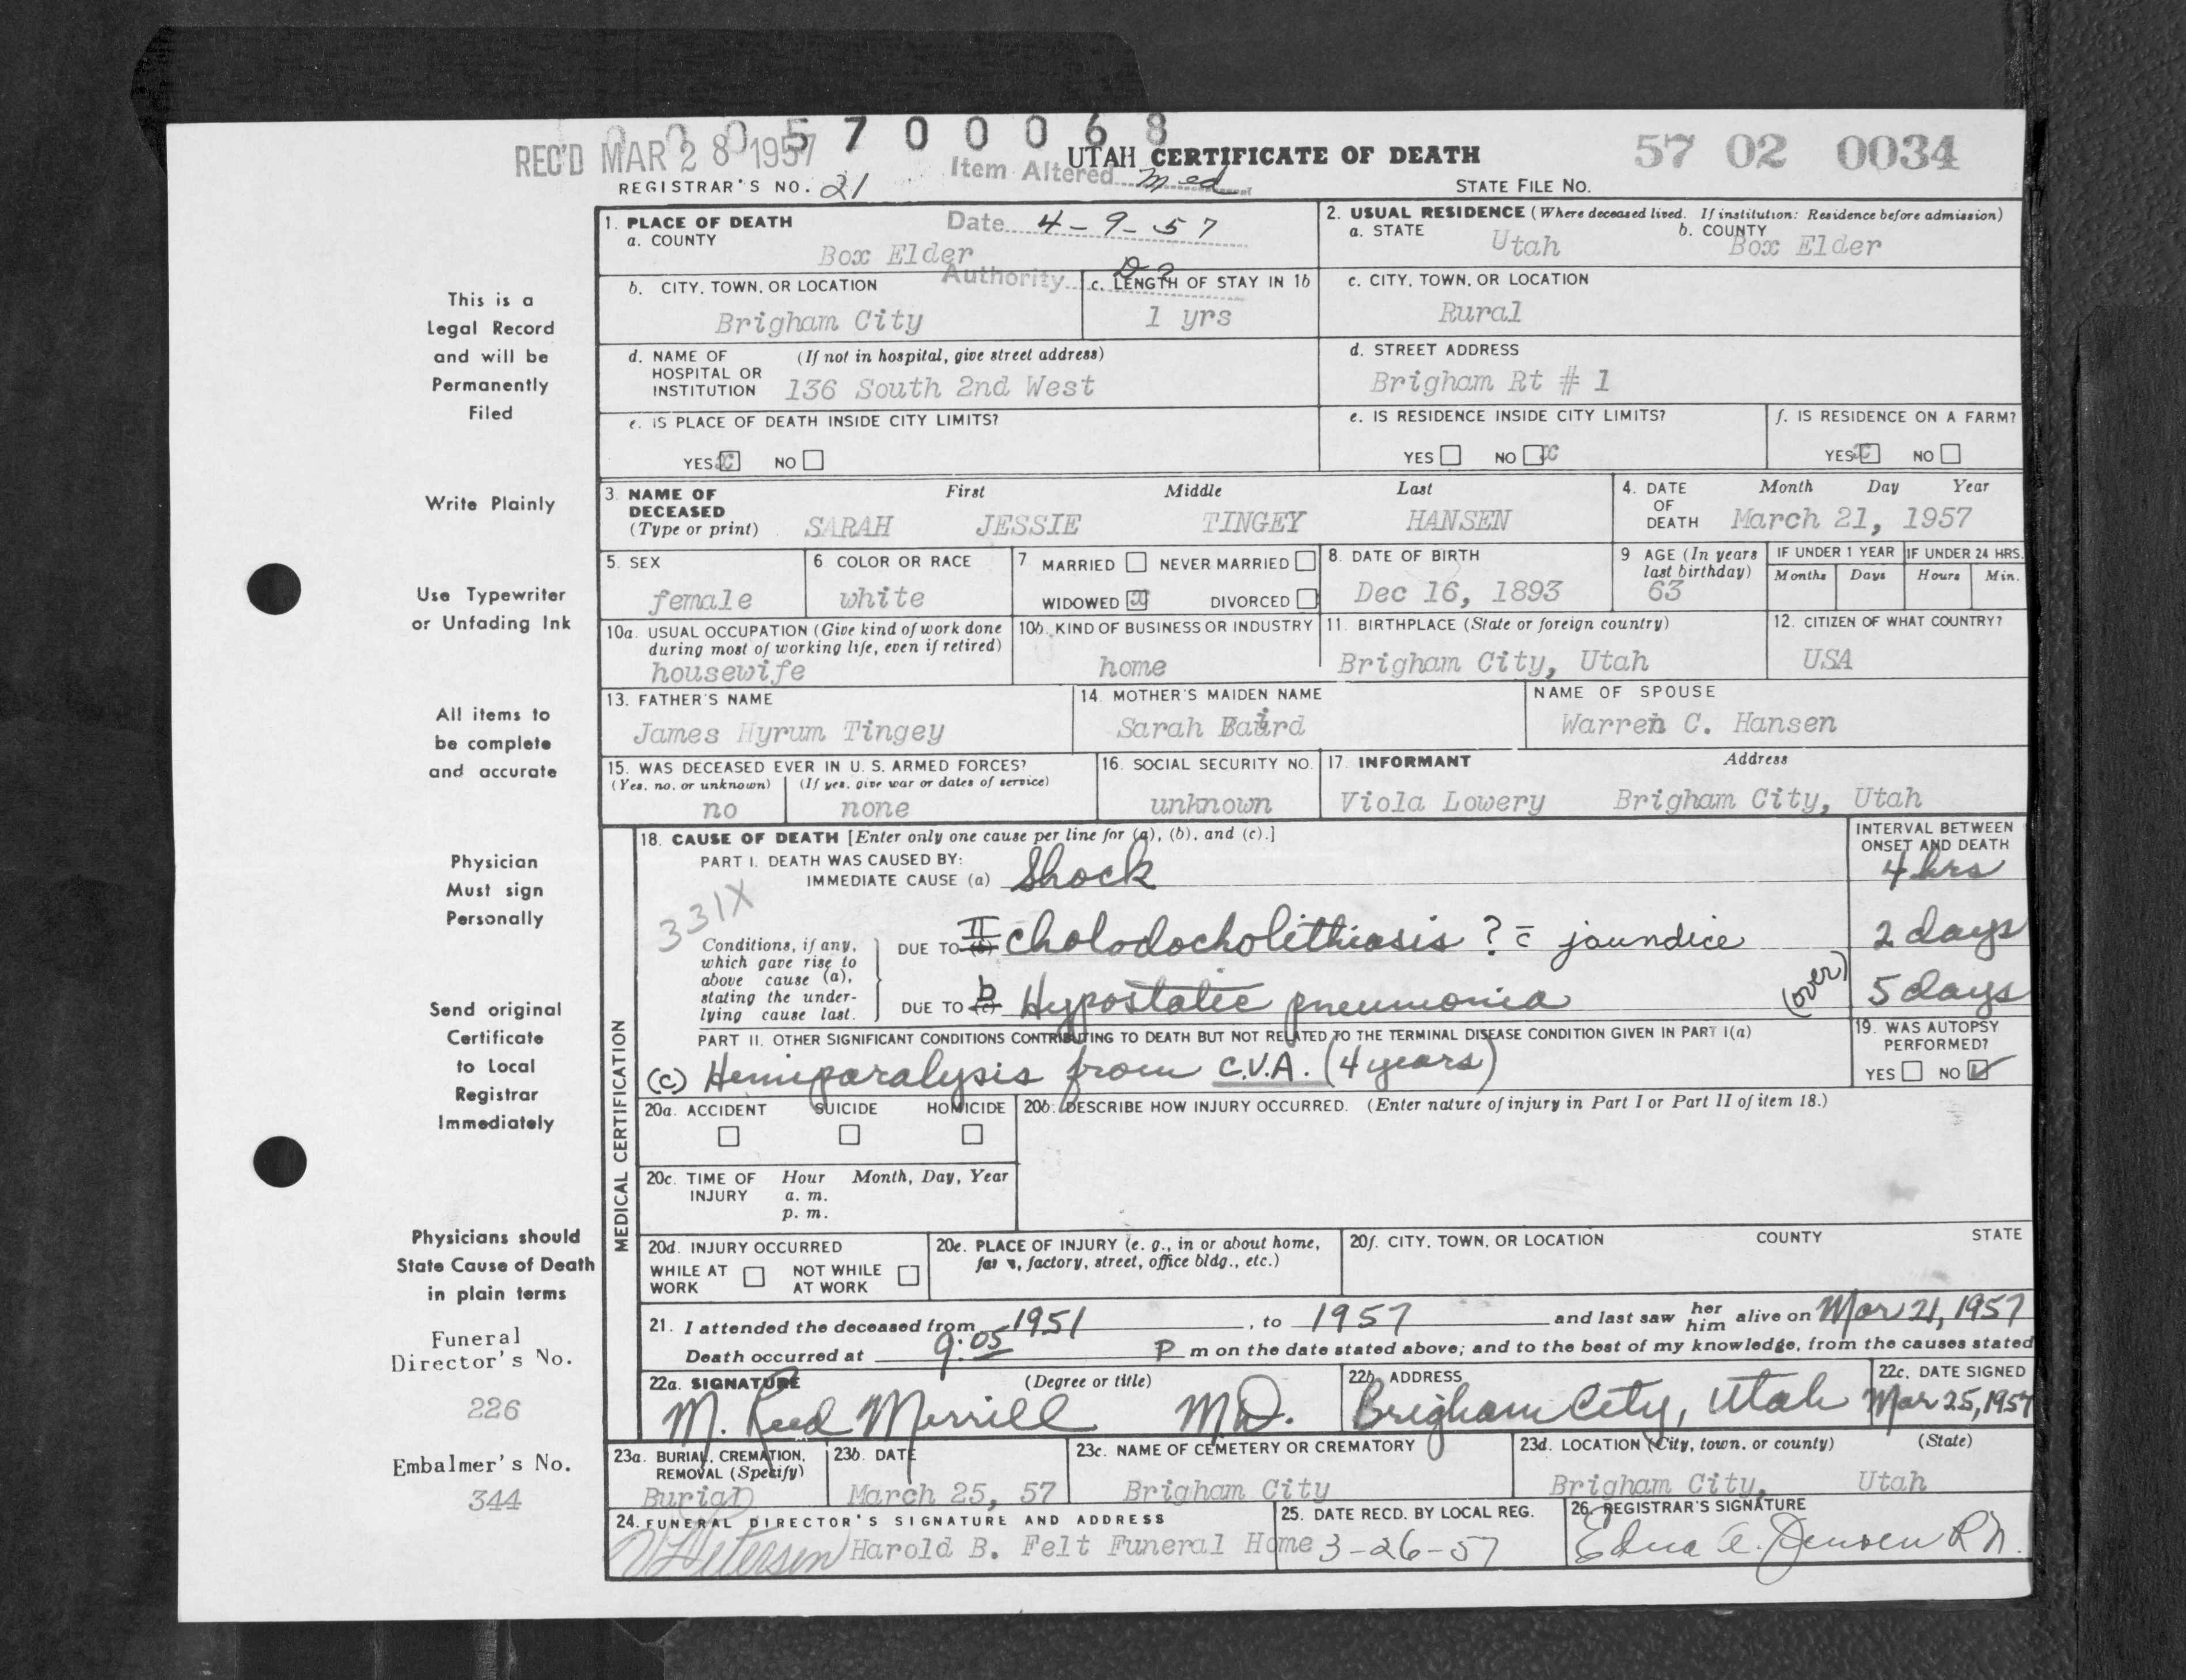 0 0 0 5 7 0 0 0 6 8
REC'D MAR 28 1957
UTAH CERTIFICATE OF DEATH
57 02 0034
REGISTRAR'S NO. 21
Item Altered Med
STATE FILE NO.
Date 4-9-57
Authority Dr
1. PLACE OF DEATH
a. COUNTY
Box Elder
2. USUAL RESIDENCE (Where deceased lived. If institution: Residence before admission)
a. STATE Utah b. COUNTY Box Elder
b. CITY, TOWN, OR LOCATION
Brigham City
c. LENGTH OF STAY IN 1b
1 yrs
c. CITY, TOWN, OR LOCATION
Rural
d. NAME OF HOSPITAL OR INSTITUTION (If not in hospital, give street address)
136 South 2nd West
d. STREET ADDRESS
Brigham Rt # 1
e. IS PLACE OF DEATH INSIDE CITY LIMITS?
YES x NO
e. IS RESIDENCE INSIDE CITY LIMITS?
YES NO x
f. IS RESIDENCE ON A FARM?
YES x NO
3. NAME OF DECEASED (Type or print) First Middle Last
SARAH JESSIE TINGEY HANSEN
4. DATE OF DEATH Month Day Year
March 21, 1957
5. SEX
female
6 COLOR OR RACE
white
7 MARRIED NEVER MARRIED
WIDOWED x DIVORCED
8. DATE OF BIRTH
Dec 16, 1893
9 AGE (In years last birthday)
63
IF UNDER 1 YEAR IF UNDER 24 HRS.
Months Days Hours Min.
10a. USUAL OCCUPATION (Give kind of work done during most of working life, even if retired)
housewife
10b. KIND OF BUSINESS OR INDUSTRY
home
11. BIRTHPLACE (State or foreign country)
Brigham City, Utah
12. CITIZEN OF WHAT COUNTRY?
USA
13. FATHER'S NAME
James Hyrum Tingey
14. MOTHER'S MAIDEN NAME
Sarah Baird
NAME OF SPOUSE
Warren C. Hansen
15. WAS DECEASED EVER IN U. S. ARMED FORCES?
(Yes, no, or unknown) (If yes, give war or dates of service)
no none
16. SOCIAL SECURITY NO.
unknown
17. INFORMANT Address
Viola Lowery Brigham City, Utah
MEDICAL CERTIFICATION
18. CAUSE OF DEATH [Enter only one cause per line for (a), (b), and (c).]
INTERVAL BETWEEN ONSET AND DEATH
PART I. DEATH WAS CAUSED BY:
IMMEDIATE CAUSE (a) Shock 4 hrs
331X
Conditions, if any, which gave rise to above cause (a), stating the underlying cause last.
DUE TO (b) II Cholodocholithiasis ? c̄ jaundice 2 days
DUE TO (c) b Hypostatic pneumonia (over) 5 days
PART II. OTHER SIGNIFICANT CONDITIONS CONTRIBUTING TO DEATH BUT NOT RELATED TO THE TERMINAL DISEASE CONDITION GIVEN IN PART I(a)
(c) Hemiparalysis from C.V.A. (4 years)
19. WAS AUTOPSY PERFORMED?
YES NO ✓
20a. ACCIDENT SUICIDE HOMICIDE
20b. DESCRIBE HOW INJURY OCCURRED. (Enter nature of injury in Part I or Part II of item 18.)
20c. TIME OF INJURY Hour Month, Day, Year
a. m.
p. m.
20d. INJURY OCCURRED
WHILE AT WORK NOT WHILE AT WORK
20e. PLACE OF INJURY (e. g., in or about home, farm, factory, street, office bldg., etc.)
20f. CITY, TOWN, OR LOCATION COUNTY STATE
21. I attended the deceased from 1951, to 1957 and last saw her him alive on Mar 21, 1957
Death occurred at 9:05 P m on the date stated above; and to the best of my knowledge, from the causes stated
22a. SIGNATURE (Degree or title)
M. Reed Merrill M.D.
22b. ADDRESS
Brigham City, Utah
22c. DATE SIGNED
Mar 25, 1957
23a. BURIAL, CREMATION, REMOVAL (Specify)
Burial
23b. DATE
March 25, 57
23c. NAME OF CEMETERY OR CREMATORY
Brigham City
23d. LOCATION (City, town, or county) (State)
Brigham City, Utah
24. FUNERAL DIRECTOR'S SIGNATURE AND ADDRESS
Petersen Harold B. Felt Funeral Home
25. DATE RECD. BY LOCAL REG.
3-26-57
26. REGISTRAR'S SIGNATURE
Edna E. Jensen R.N.
This is a
Legal Record
and will be
Permanently
Filed
Write Plainly
Use Typewriter
or Unfading Ink
All items to
be complete
and accurate
Physician
Must sign
Personally
Send original
Certificate
to Local
Registrar
Immediately
Physicians should
State Cause of Death
in plain terms
Funeral
Director's No.
226
Embalmer's No.
344